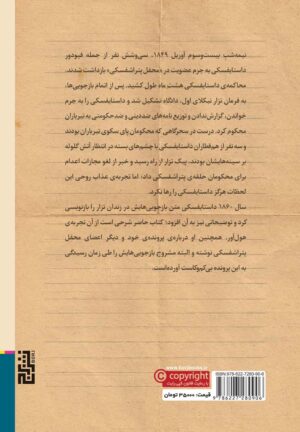 نیمه‌شب بیست‌وسوم آوریل ۱۸۴۹، سی‌وشش نفر از جمله فیودور
داستایفسکی به جرم عضویت در «محفل پتراشفسکی» بازداشت شدند.
محاکمه‌ی داستایفسکی هشت ماه طول کشید. پس از اتمام بازجویی‌ها،
به فرمان تزار نیکلای اول، دادگاه تشکیل شد و داستایفسکی را به جرم
خواندن، گزارش‌ندادن و توزیع نامه‌های ضددینی و ضدحکومتی به تیرباران
محکوم کرد. درست در سحرگاهی که محکومان پای سکوی تیرباران بودند
و سه نفر از هم‌قطاران داستایفسکی با چشم‌های بسته در انتظار آتش گلوله
بر سینه‌هایشان بودند، پیک تزار از راه رسید و خبر از لغو مجازات اعدام
برای محکومان حلقه‌ی پتراشفسکی داد؛ اما تجربه‌ی عذاب روحی این
لحظات هرگز داستایفسکی را رها نکرد.
سال ۱۸۶۰ داستایفسکی متن بازجویی‌هایش در زندان تزار را بازنویسی
کرد و توضیحاتی نیز به آن افزود؛ کتاب حاضر شرحی است از آن تجربه‌ی
هول‌آور. همچنین او درباره‌ی پرونده‌ی خود و دیگر اعضای محفل
پتراشفسکی نوشته و البته مشروح بازجویی‌هایش را طی زمان رسیدگی
به این پرونده بی‌کم‌وکاست آورده‌است.
copyright
قیمت: ۳۵۰۰۰ تومان